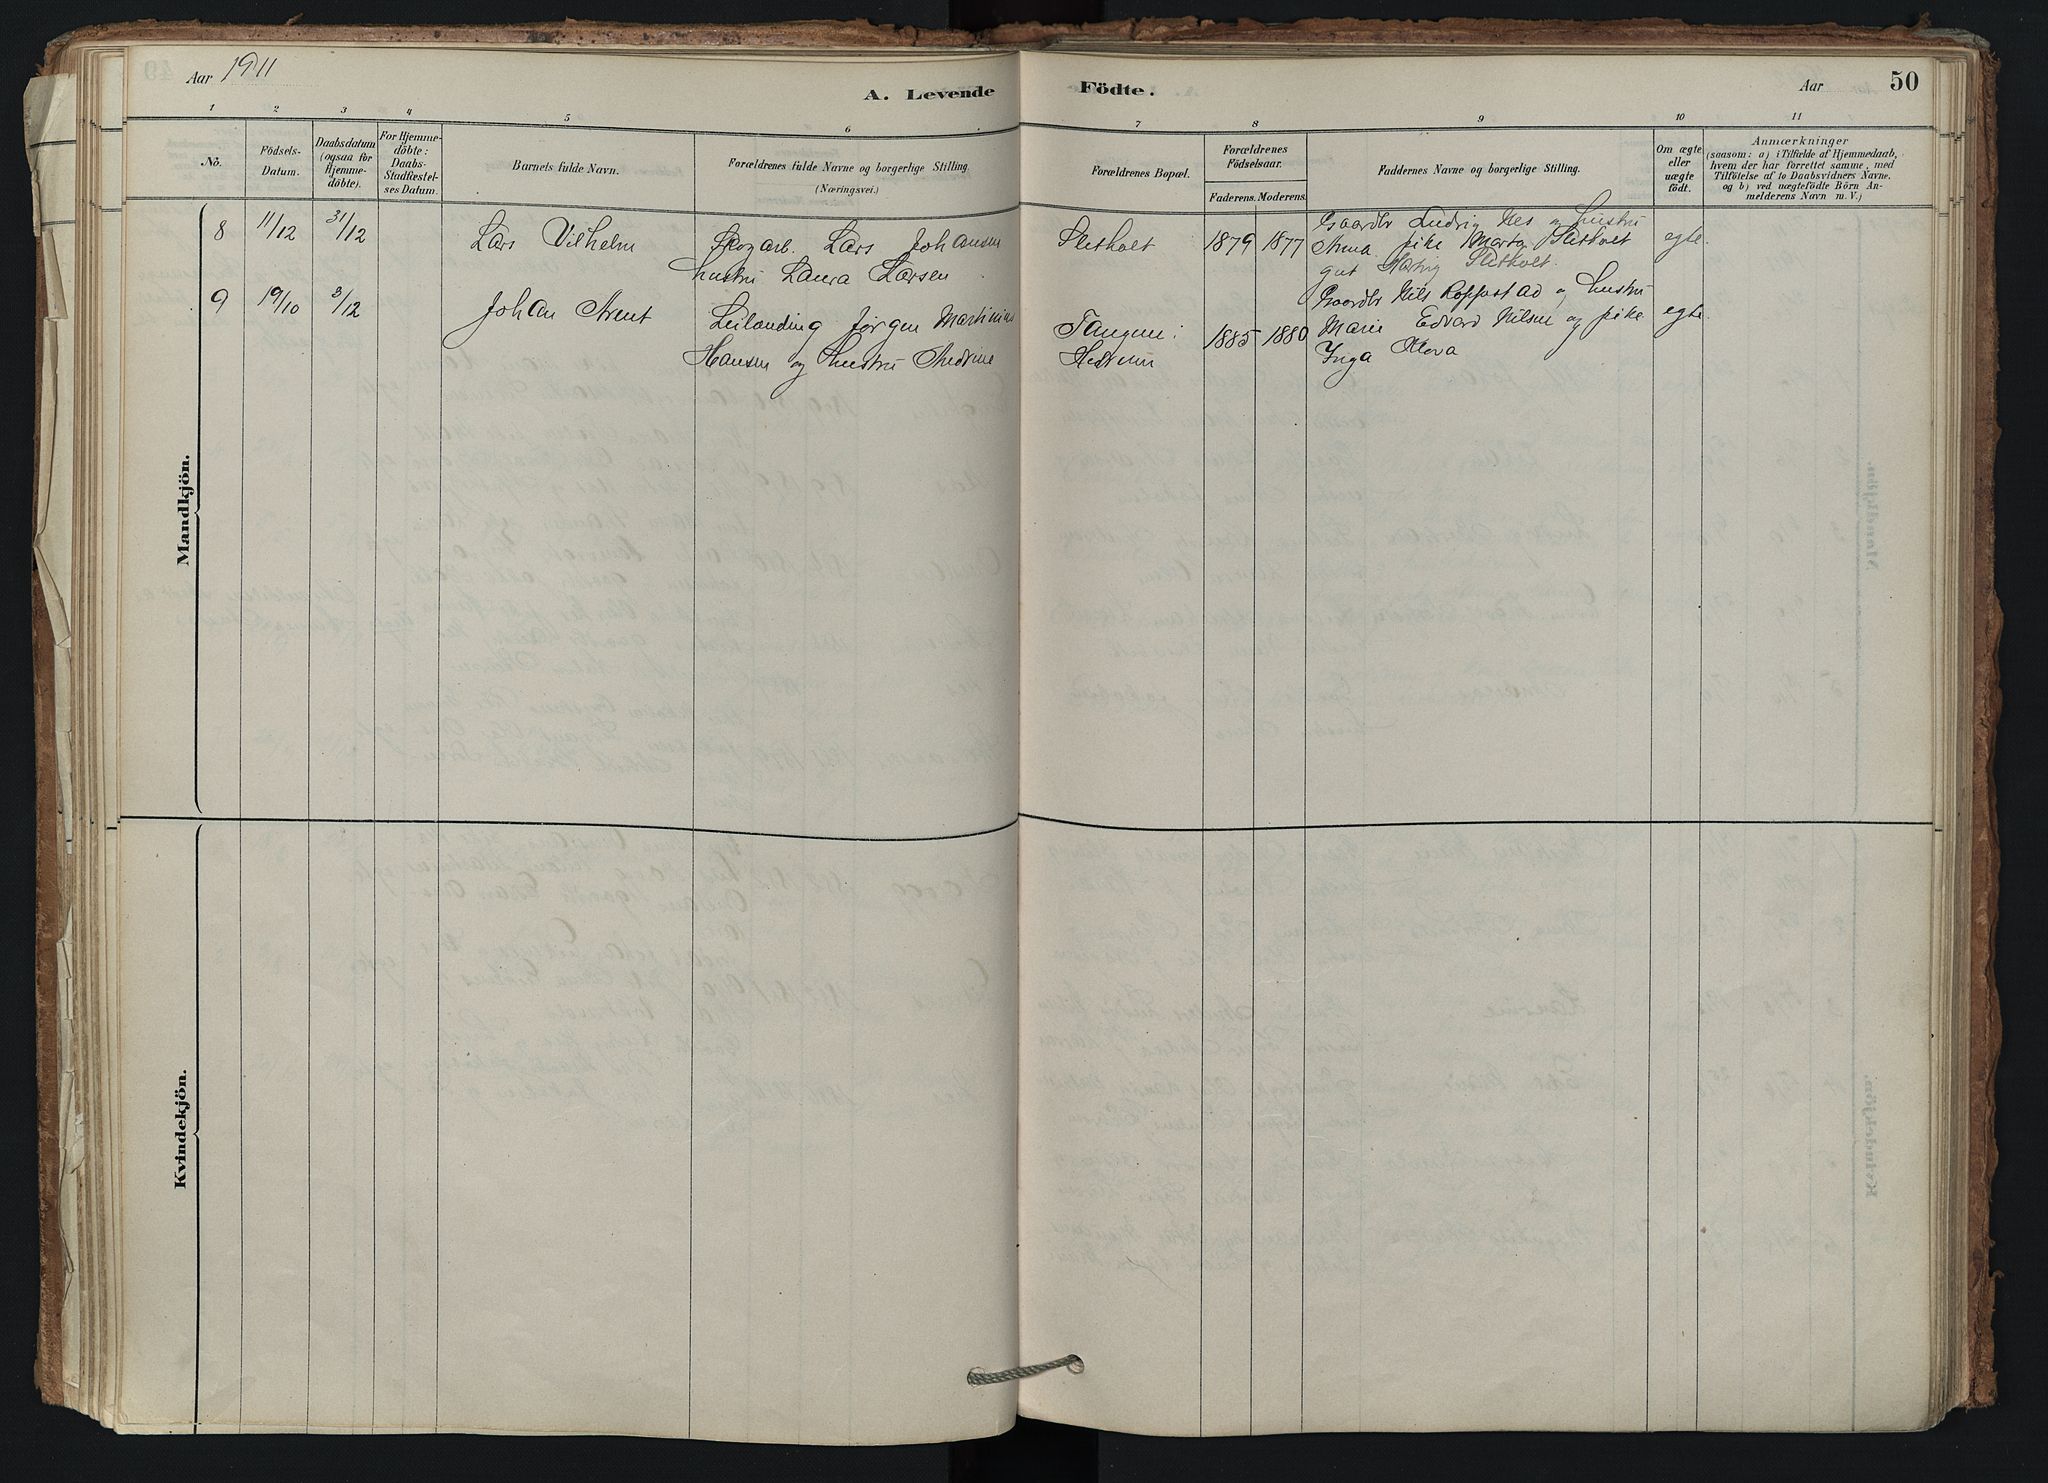 Aar 1911
A. Levende Födte.
Aar
50
1 2 3 4 5 6 7 8 9 10 11
No.
Födsels-
Datum.
Daabsdatum
(ogsaa for
Hjemme-
döbte).
For Hjemme-
döbte:
Daabs-
Stadfæstel-
ses Datum.
Barnets fulde Navn.
Forældrenes fulde Navne og borgerlige Stilling.
(Næringsvei.)
Forældrenes Bopæl.
Forældrenes
Födselsaar.
Faderens. Moderens.
Faddernes Navne og borgerlige Stilling.
Om ægte
eller
uægte
födt.
Anmærkninger
(saasom: a) i Tilfælde af Hjemmedaab,
hvem der har forrettet samme, med
Tilföielse af to Daabsvidners Navne,
og b) ved uægtefödte Börn An-
melderens Navn m. V.)
Mandkjön.
8 11/12 31/12 Lars Vilhelm
Skogarb. Lars Johansen
hustru Laura Larsen
Sletholt 1879 1877
Gaardbr Ludvig Nes og hustru
Anna pike Marta Sletholt
gut Sletholt.
egte.
9 19/10 3/12 Johan Arent
Leilænding Jørgen Martinius
Hansen og hustru Andrine
Tangen i
Hedrum
1885 1880
Gaardbr Nils Roppestad og hustru
Marie Edvard Nilsen og pike
Inga
egte.
Kvindekjön.